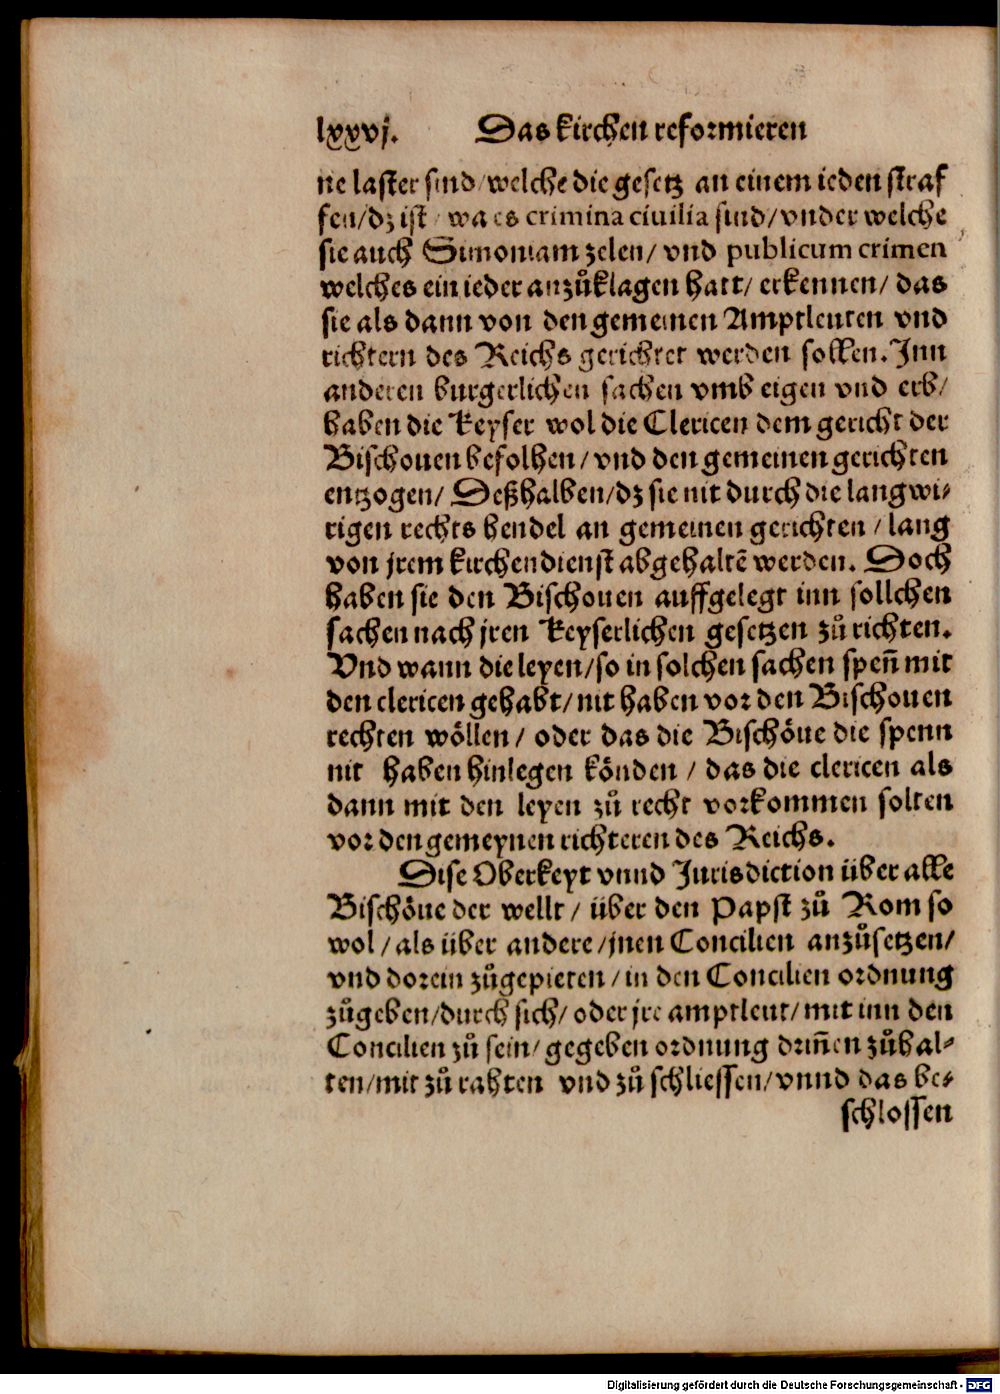 lxxvj. Das kirchen reformieren
ne laster sind/welche die gesetz an einem ieden straf
fen/dz ist/ was crimina ciuilia sind/vnder welche
sie auch Simoniam zelen/ vnd publicum crimen
welches ein ieder anzůklagen hatt/ erkennen/ das
sie als dann von den gemeinen Amptleuten vnd
richtern des Reichs gerichtet werden sollen. Jnn
anderen burgerlichen sachen vmb eigen vnd erb/
haben die Keyser wol die Clericen dem gericht der
Bischouen befolhen/ vnd den gemeinen gerichten
entzogen/ Deßhalben/dz sie nit durch die langwi⸗
rigen rechts hendel an gemeinen gerichten/ lang
von jrem kirchendienst abgehaltē werden. Doch
haben sie den Bischouen auffgelegt inn sollchen
sachen nach jren Keyserlichen gesetzen zů richten.
Vnd wann die leyen/so in solchen sachen spen̄ mit
den clericen gehabt/ nit haben vor den Bischouen
rechten wöllen/ oder das die Bischöue die spenn
nit haben hinlegen könden/ das die clericen als
dann mit den leyen zů recht vorkommen solten
vor den gemeynen richteren des Reichs.
Dise Oberkeyt vnnd Jurisdiction über alle
Bischöue der wellt/ über den Papst zů Rom so
wol/ als über andere/jnen Concilien anzůsetzen/
vnd dorein zůgepieten/ in den Concilien ordnung
zůgeben/durch sich/ oder jre amptleut/ mit inn den
Concilien zů sein/ gegeben ordnung drin̄en zůhal⸗
ten/mit zů rahten vnd zů schliessen/ vnnd das be⸗
schlossen
Digitalisierung gefördert durch die Deutsche Forschungsgemeinschaft - DFG